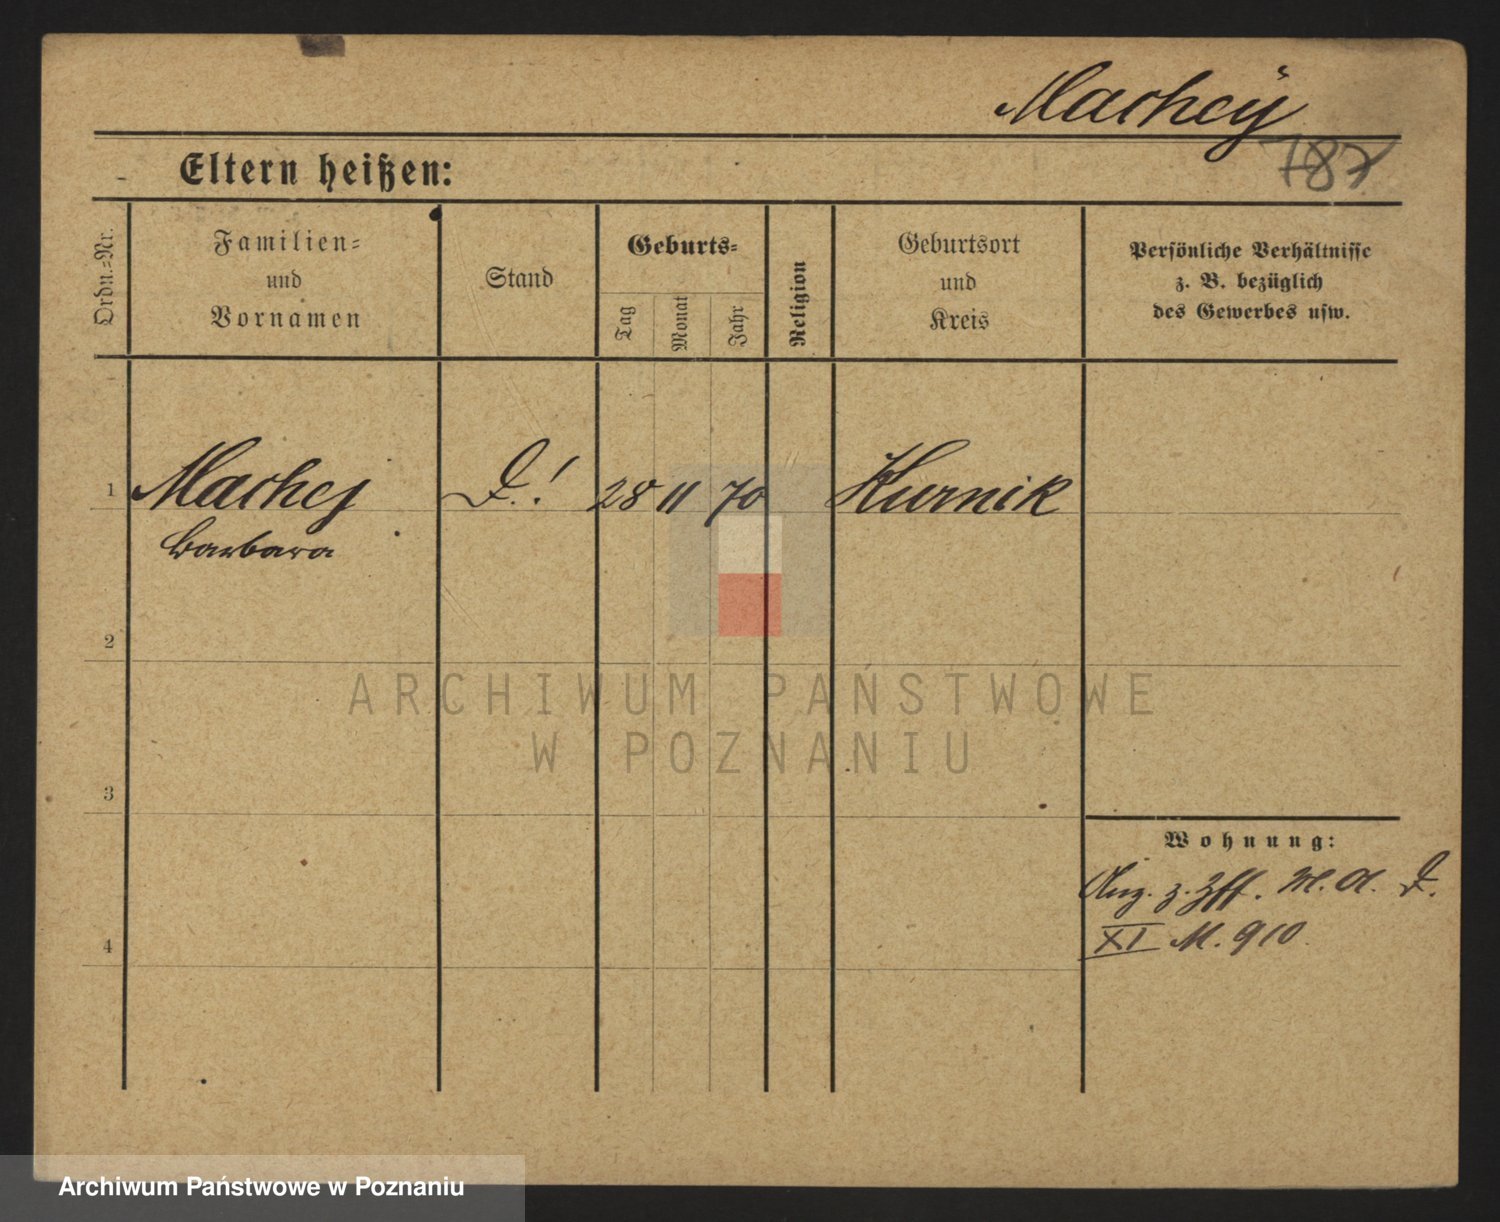 Machey
787
Eltern heißen:
Ordn.-Nr.
Familien-
und
Vornamen
Stand
Geburts-
Tag
Monat
Jahr
Religion
Geburtsort
und
Kreis
Persönliche Verhältnisse
z. B. bezüglich
des Gewerbes usw.
1 Machej D.! 28 11 70 Kurnik
Barbara
2
3
4
Wohnung:
z.
XI M. 910.
ARCHIWUM PAŃSTWOWE
W POZNANIU
Archiwum Państwowe w Poznaniu